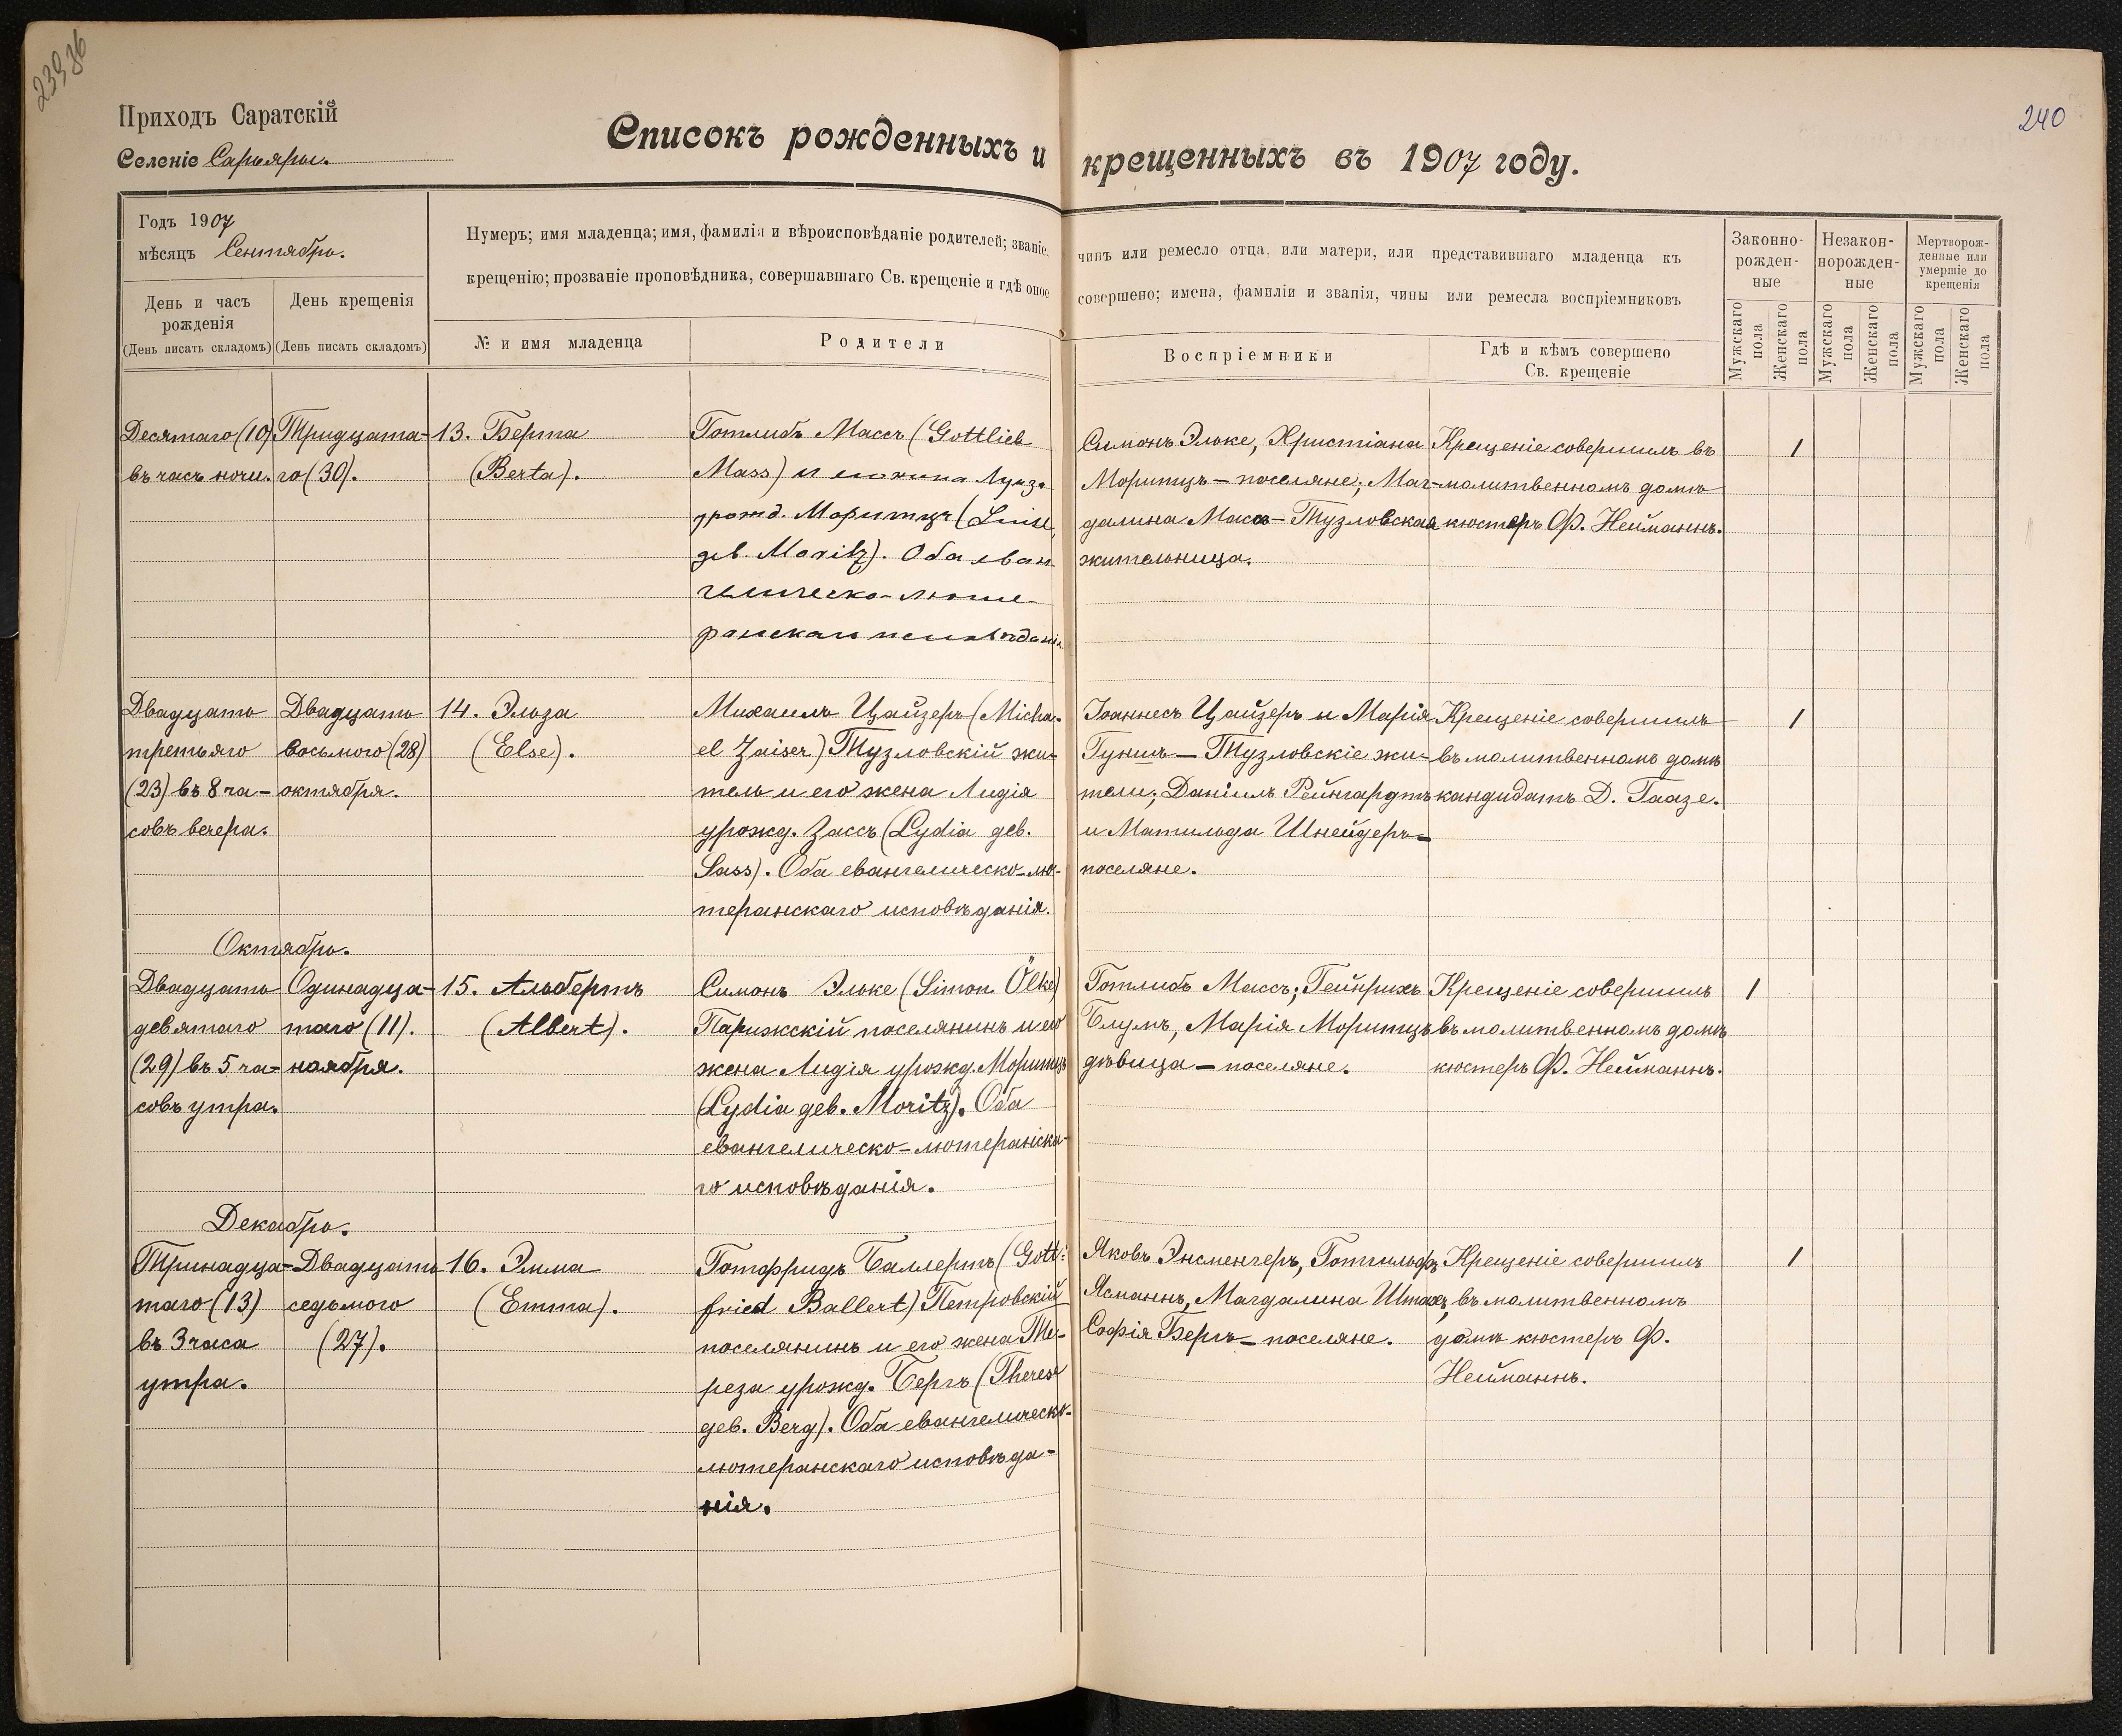 240
Приходъ Саратскій
Селеніе Сарьяры.
Списокъ рожденныхъ и крещенныхъ въ 1907 году.
Годъ 1907
мѣсяцъ Сентябрь.
День и часъ рожденія
(День писать складомъ)
День крещенія
(День писать складомъ)
Нумеръ; имя младенца; имя, фамилія и вѣроисповѣданіе родителей; званіе, чинъ или ремесло отца, или матери, или представившаго младенца къ
крещенію; прозваніе проповѣдника, совершавшаго Св. крещеніе и гдѣ оное совершено; имена, фамиліи и званія, чины или ремесла воспріемниковъ
№ и имя младенца
Родители
Воспріемники
Гдѣ и кѣмъ совершено
Св. крещеніе
Законно-
рожден-
ные
Незакон-
норожден-
ные
Мертворож-
денные или
умершіе до
крещенія
Мужскаго пола
Женскаго пола
Мужскаго пола
Женскаго пола
Мужскаго пола
Женскаго пола
Десятаго (10)
въ часъ ночи.
Тридцата-
го (30).
13. Берта
(Berta).
Готлибъ Массъ (Gottlieb
Mass) и его жена Луиза
урожд. Моритцъ (Luise
geb. Moritz). Оба еван-
гелическо-люте-
ранскаго исповѣданія.
Симонъ Эльке, Христіана
Моритцъ — поселяне; Маг-
далина Массъ — Тузловская
жительница.
Крещеніе совершилъ въ
молитвенномъ домѣ
кюстеръ Ф. Нейманнъ.
1
Двадцать
третьяго
(23) въ 8 ча-
совъ вечера.
Двадцать
восьмого (28)
октября.
14. Эльза
(Else).
Михаилъ Цайзеръ (Micha-
el Zaiser) Тузловскій жи-
тель и его жена Лидія
урожд. Зассъ (Lydia geb.
Sass). Оба евангелическо-лю-
теранскаго исповѣданія.
Іоаннесъ Цайзеръ и Марія
— Тузловскіе жи-
тели; Даніилъ Рейнгардтъ
и Матильда Шнейдеръ —
поселяне.
Крещеніе совершилъ
въ молитвенномъ домѣ
кандидатъ Д. Гаазе.
1
Октябрь.
Двадцать
девятаго
(29) въ 5 ча-
совъ утра.
Одинадца-
таго (11).
ноября.
15. Альбертъ
(Albert).
Симонъ Эльке (Simon Ölke)
Парижскій поселянинъ и его
жена Лидія урожд. Моритцъ
(Lydia geb. Moritz). Оба
евангелическо-лютеранска-
го исповѣданія.
Готлибъ Массъ; Гейнрихъ
Блумъ, Марія Моритцъ
дѣвица — поселяне.
Крещеніе совершилъ
въ молитвенномъ домѣ
кюстеръ Ф. Нейманнъ.
1
Декабрь.
Тринадца-
таго (13)
въ 3 часа
утра.
Двадцать
седьмого
(27).
16. Эмма
(Emma).
Готфридъ Баллертъ (Gott-
fried Ballert) Петровскій
поселянинъ и его жена Те-
реза урожд. Бергъ (Therese
geb. Berg). Оба евангелическо-
лютеранскаго исповѣда-
нія.
Яковъ Энсменгеръ, Готгильфъ
Ясманнъ, Магдалина
Софія Бергъ — поселяне.
Крещеніе совершилъ
въ молитвенномъ
домѣ кюстеръ Ф.
Нейманнъ.
1